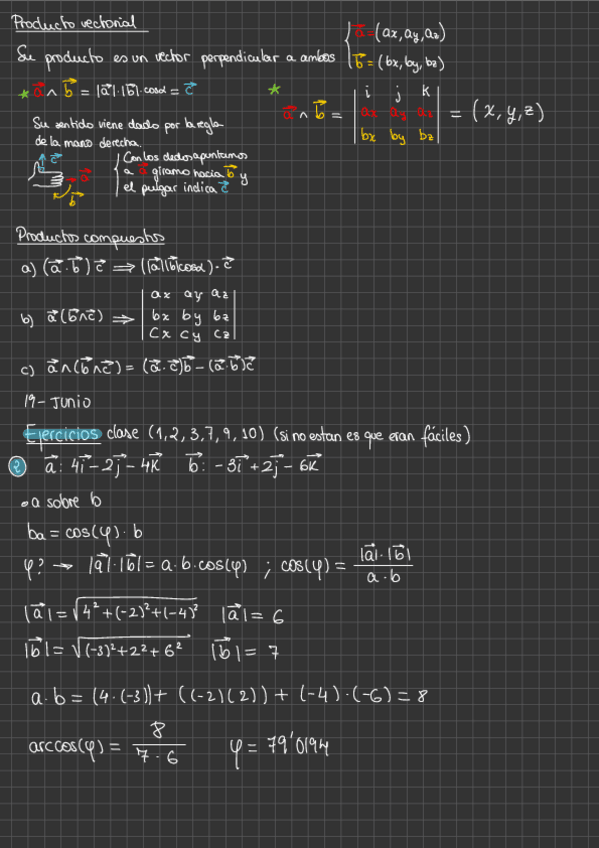 Producto vectorial
Su producto es un vector perpendicular a ambos { a⃗ = (ax, ay, az)
b⃗ = (bx, by, bz)
* a⃗ ∧ b⃗ = |a⃗|·|b⃗|·cosα = c⃗
* a⃗ ∧ b⃗ = | i j k |
| ax ay az | = (x, y, z)
| bx by bz |
Su sentido viene dado por la regla
de la mano derecha.
c⃗ a⃗ b⃗
{ Con los dedos apuntamos
a a⃗ giramo hacia b⃗ y
el pulgar indica c⃗
Productos compuestos
a) (a⃗·b⃗) c⃗ ⟹ (|a⃗||b⃗|cosα)·c⃗
b) a⃗(b⃗∧c⃗) ⟹ | ax ay az |
| bx by bz |
| Cx cy cz |
c) a⃗∧(b⃗∧c⃗) = (a⃗·c⃗)b⃗ - (a⃗·b⃗)c⃗
19 - Junio
Ejercicios clase (1, 2, 3, 7, 9, 10) (si no estan es que eran fáciles)
2 a⃗: 4i⃗ - 2j⃗ - 4k⃗ b⃗: -3i⃗ + 2j⃗ - 6k⃗
• a sobre b
ba = cos(φ)·b
φ? → |a⃗|·|b⃗| = a·b·cos(φ) ; cos(φ) = |a⃗|·|b⃗| / a·b
|a⃗| = √4² + (-2)² + (-4)² |a⃗| = 6
|b⃗| = √(-3)² + 2² + 6² |b⃗| = 7
a·b = (4·(-3)) + ((-2)(2)) + (-4)·(-6) = 8
arccos(φ) = 8 / 7·6 φ = 79'0194